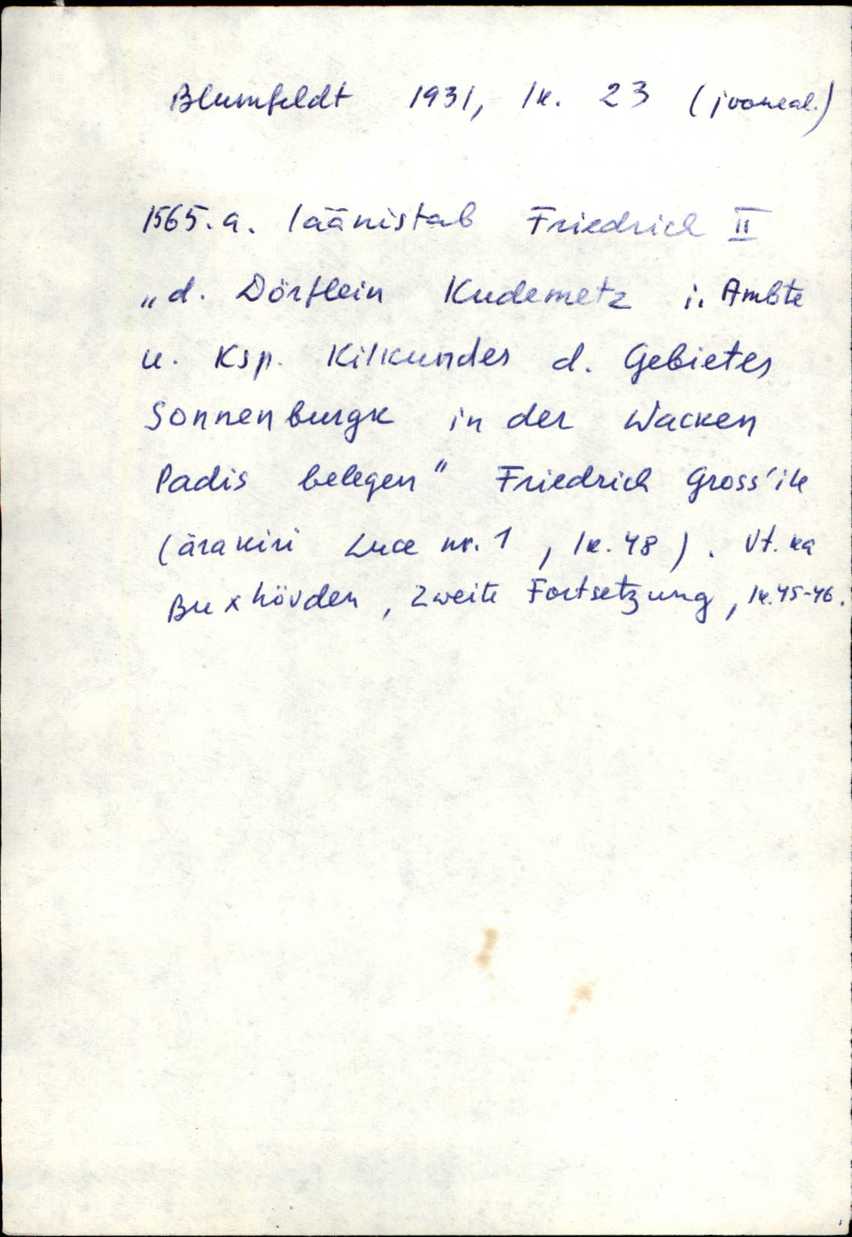 Blumfeldt 1931, lk. 23 (jooneal.)
1565.a. läänistab Friedrich II
„d. Dörflein Kudemetz i. Ambte
u. Ksp. Kilkundes d. Gebietes
Sonnenburgk in der Wacken
Padis belegen" Friedrich Gross'ile
(ärakiri Luce nr. 1, lk. 48). Vt. ka
Buxhövden, Zweite Fortsetzung, lk. 45-46.